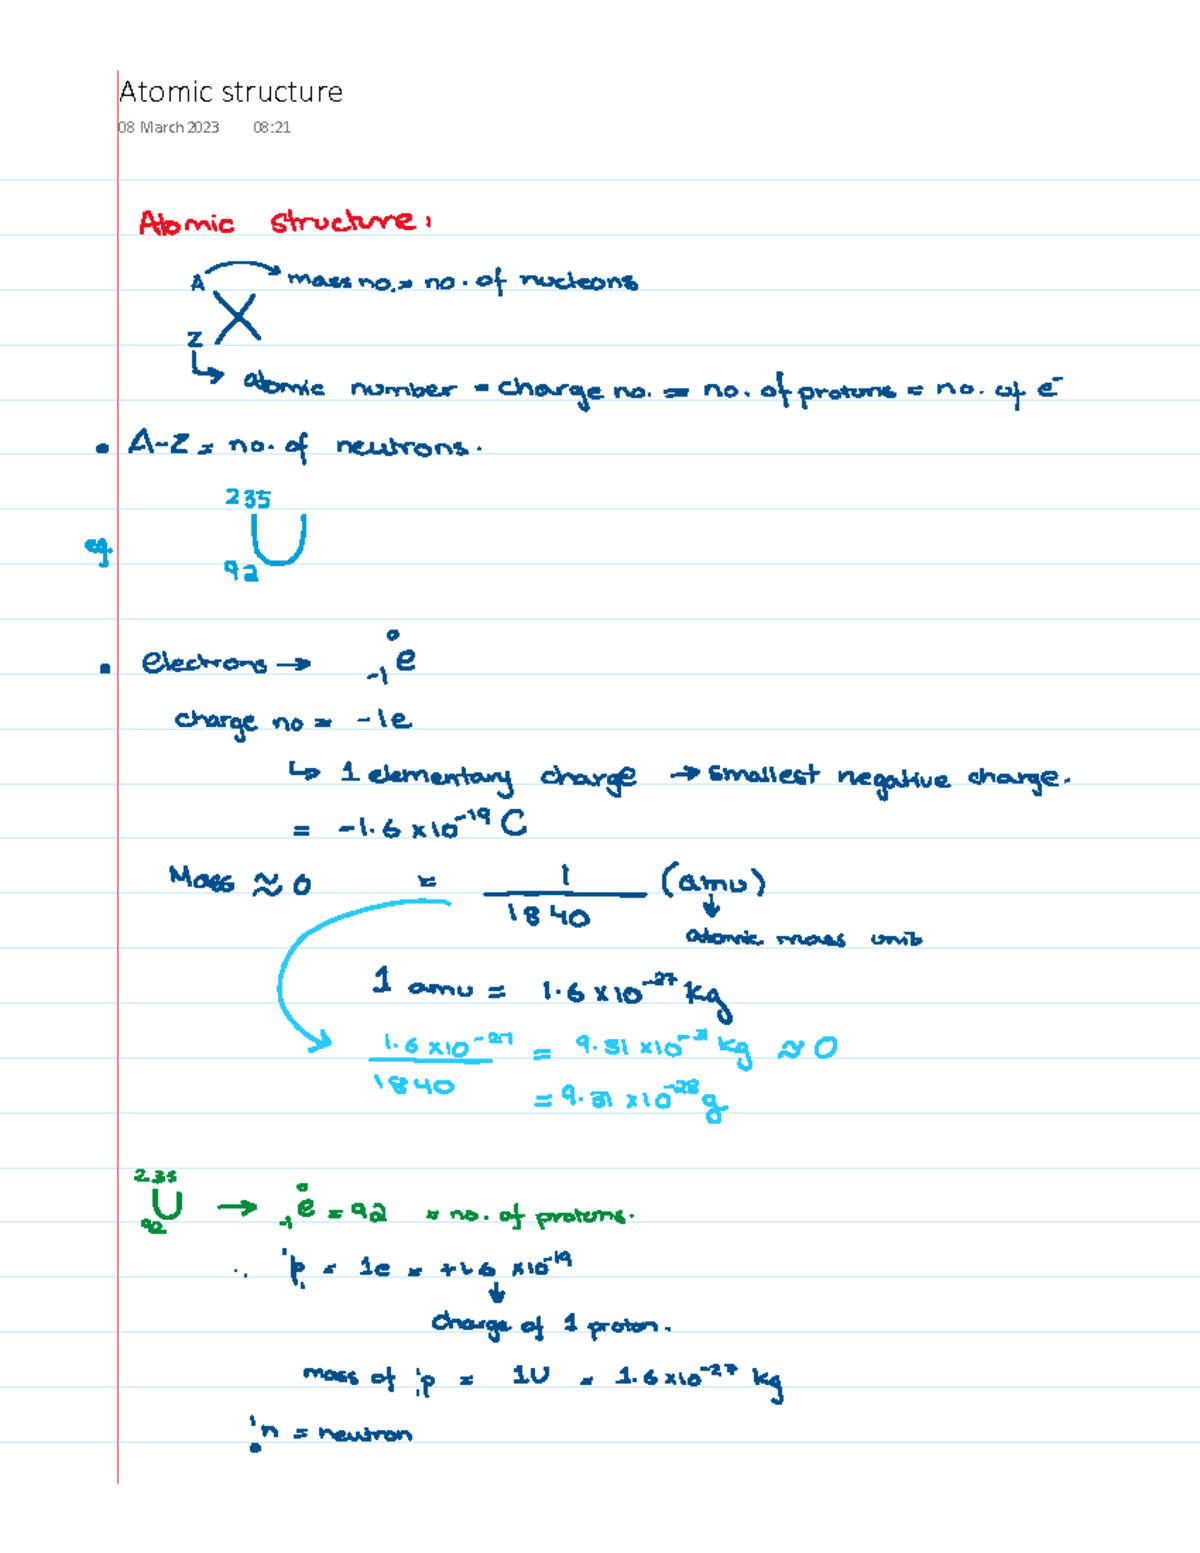 Atomic structure
08 March 2023 08:21
Atomic structure:
A → mass no. = no. of nucleons
X
Z
↳ atomic number = charge no. = no. of protons = no. of e⁻
• A-Z = no. of neutrons.
235
eg. U
92
• electrons → ⁰₋₁e
charge no = -1e
↳ 1 elementary charge → smallest negative charge.
= -1.6 x10⁻¹⁹ C
Mass ≈ 0 = 1/1840 (amu)
↓
atomic mass unit
1 amu = 1.6 x10⁻²⁷ kg
1.6 x10⁻²⁷/1840 = 9.31 x10⁻³¹ kg ≈ 0
= 9.31 x10⁻²⁸ g
²³⁵₉₂U → ⁰₋₁e = 92 = no. of protons.
∴ ¹₁p = 1e = +1.6 x10⁻¹⁹
↓
charge of 1 proton.
mass of ¹₁p = 1U = 1.6 x10⁻²⁷ kg
¹₀n = neutron